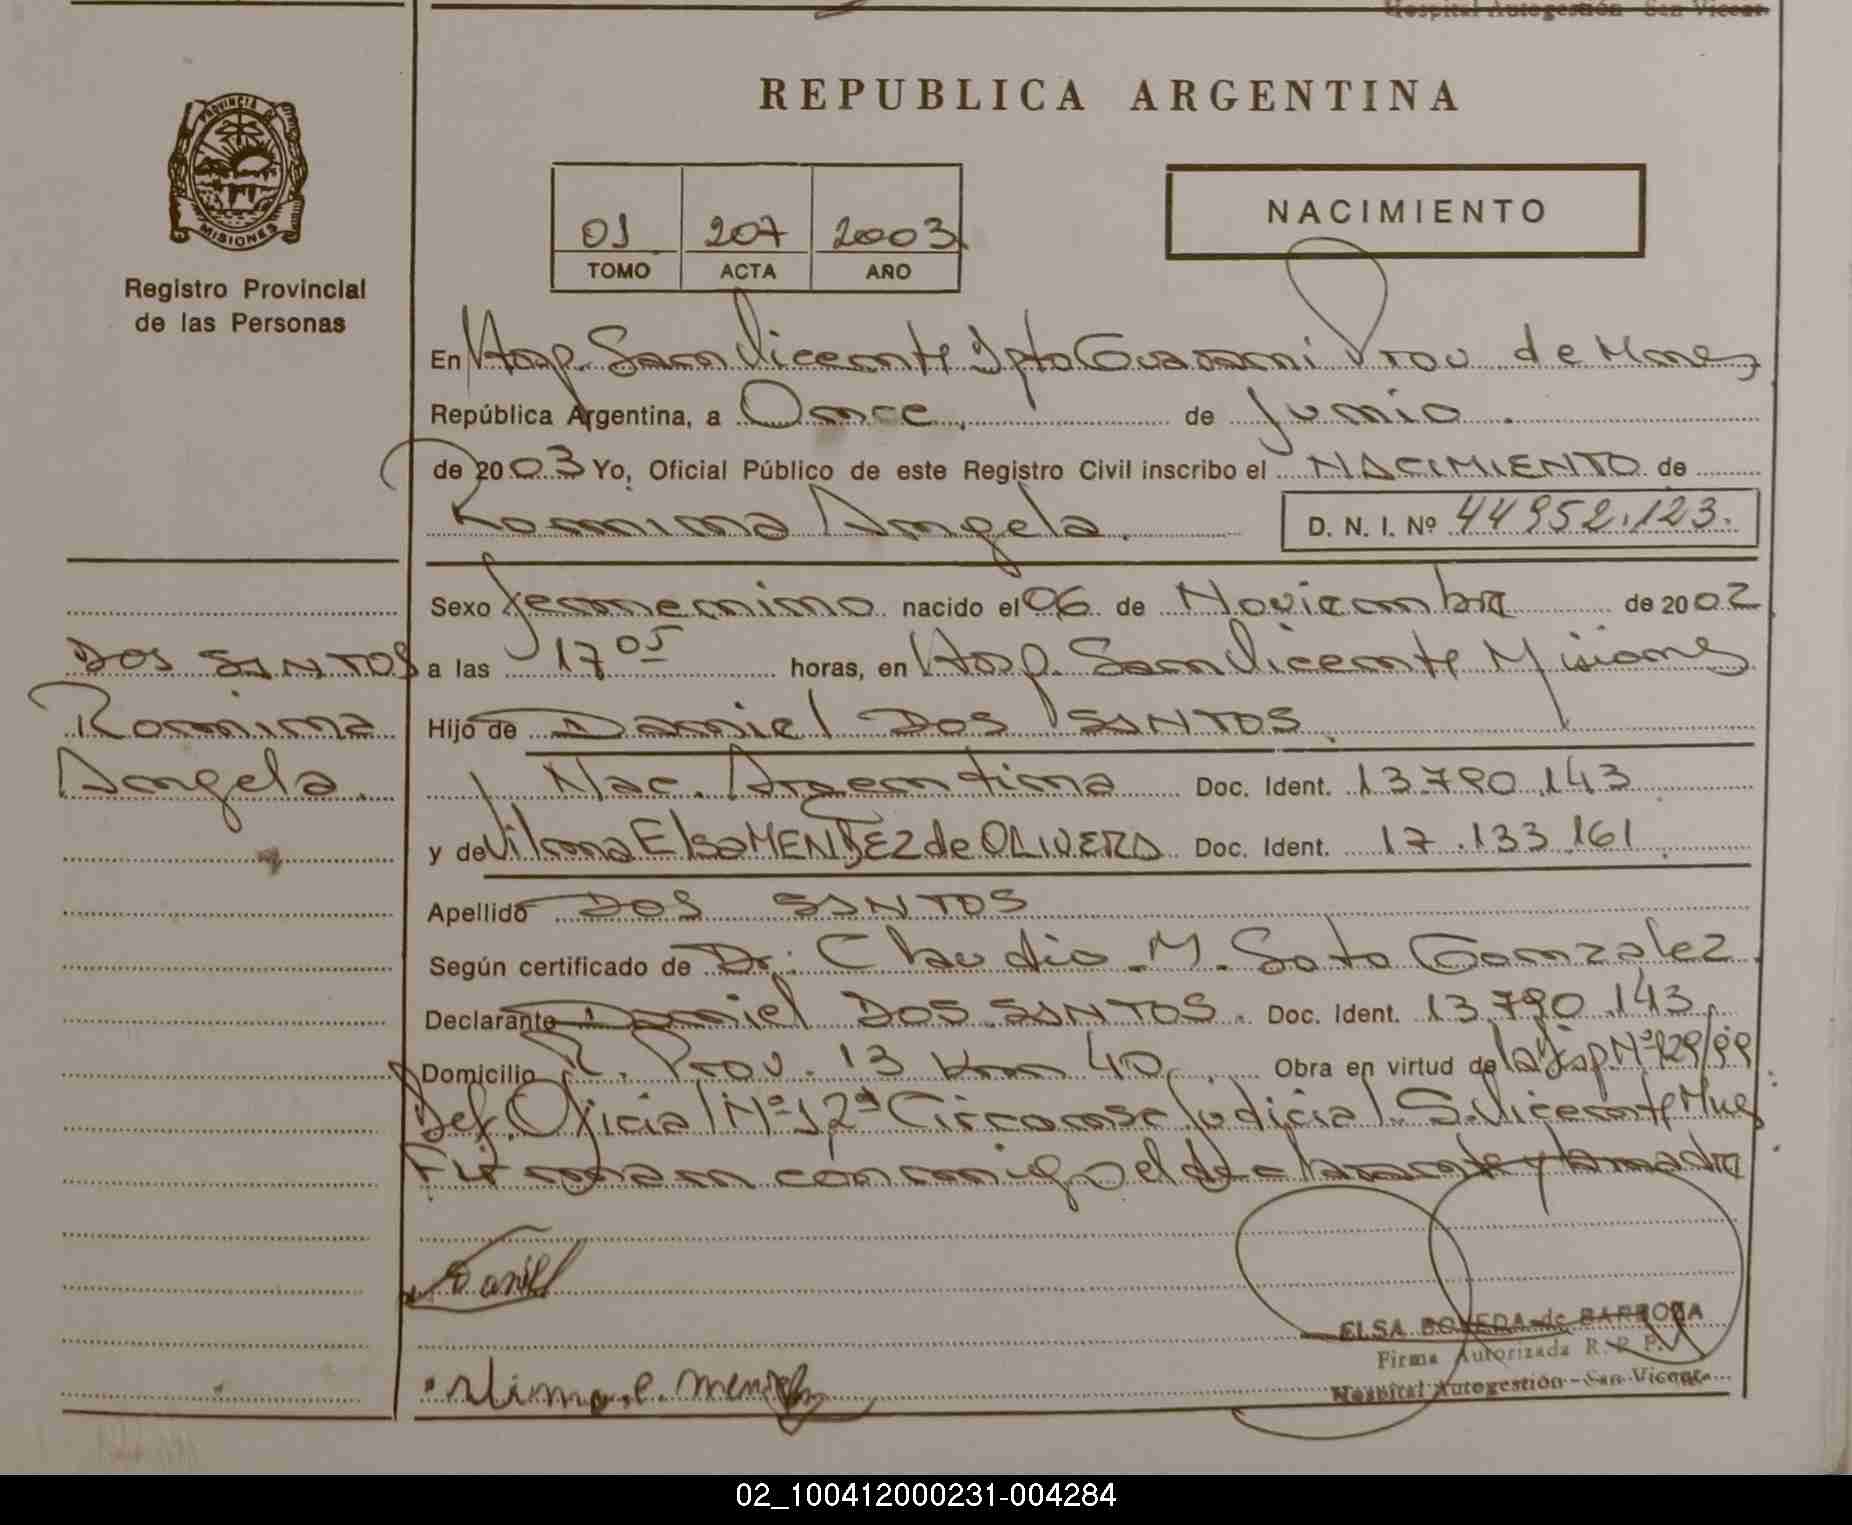 Hospital Autogestión - San Vicente
REPUBLICA ARGENTINA
PROVINCIA DE
MISIONES
Registro Provincial
de las Personas
01 207 2003
TOMO ACTA AÑO
NACIMIENTO
En Hosp. San Vicente Dpto Guarani Prov de Mnes
República Argentina, a Once de Junio
de 2003 Yo, Oficial Público de este Registro Civil inscribo el NACIMIENTO de
Romina Angela. D. N. I. Nº 44952.123.
Sexo femenino nacido el 06 de Noviembre de 2002
DOS SANTOS
Romina
Angela.
a las 17 05 horas, en Hosp. San Vicente Misiones
Hijo de Daniel DOS SANTOS.
Nac. Argentina Doc. Ident. 13.790.143
y de Vilma Elsa MENDEZ de OLIVERA Doc. Ident. 17.133.161
Apellido DOS SANTOS
Según certificado de Dr. Claudio M. Soto Gonzalez
Declarante Daniel DOS SANTOS. Doc. Ident. 13.790.143
Domicilio R. Prov. 13 km 40 Obra en virtud de la Disp. Nº 129/99
Def. Oficial Nº 1 2ª Circonsc Judicial S. Vicente Mnes
Firman conmigo el declarante y la madre
Daniel
ELSA BOVEDA de BARBOZA
Firma Autorizada R. P. P.
Hospital Autogestión - San Vicente
Vilma. e. mendez
02_100412000231-004284